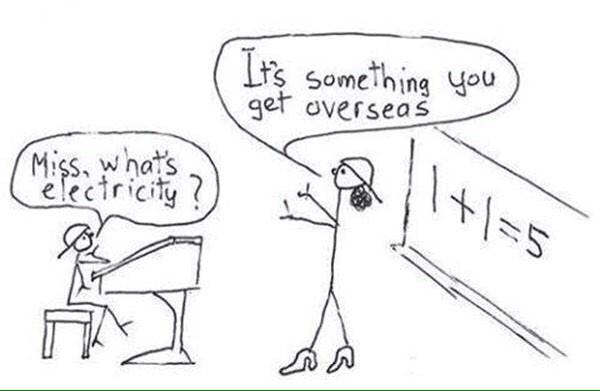 It's something you
get overseas
Miss, what's
electricity?
1+1=5